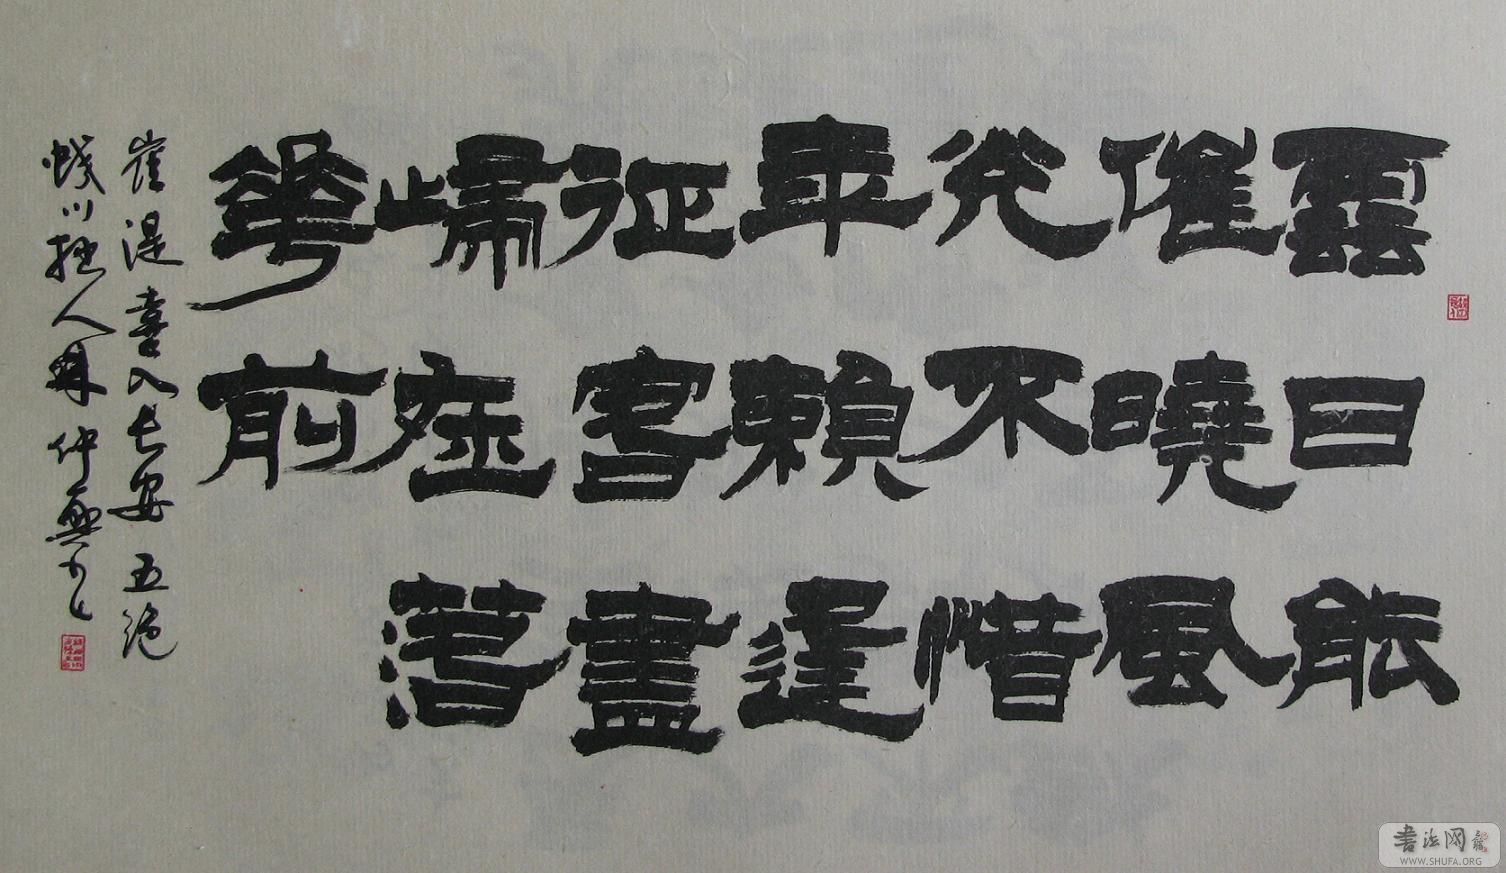 雲日能
催曉風
光不惜
年賴逢
征客盡
歸在落
華前
崔湜喜入长安五绝
川 人林仲興书
書法网
WWW.SHUFA.ORG